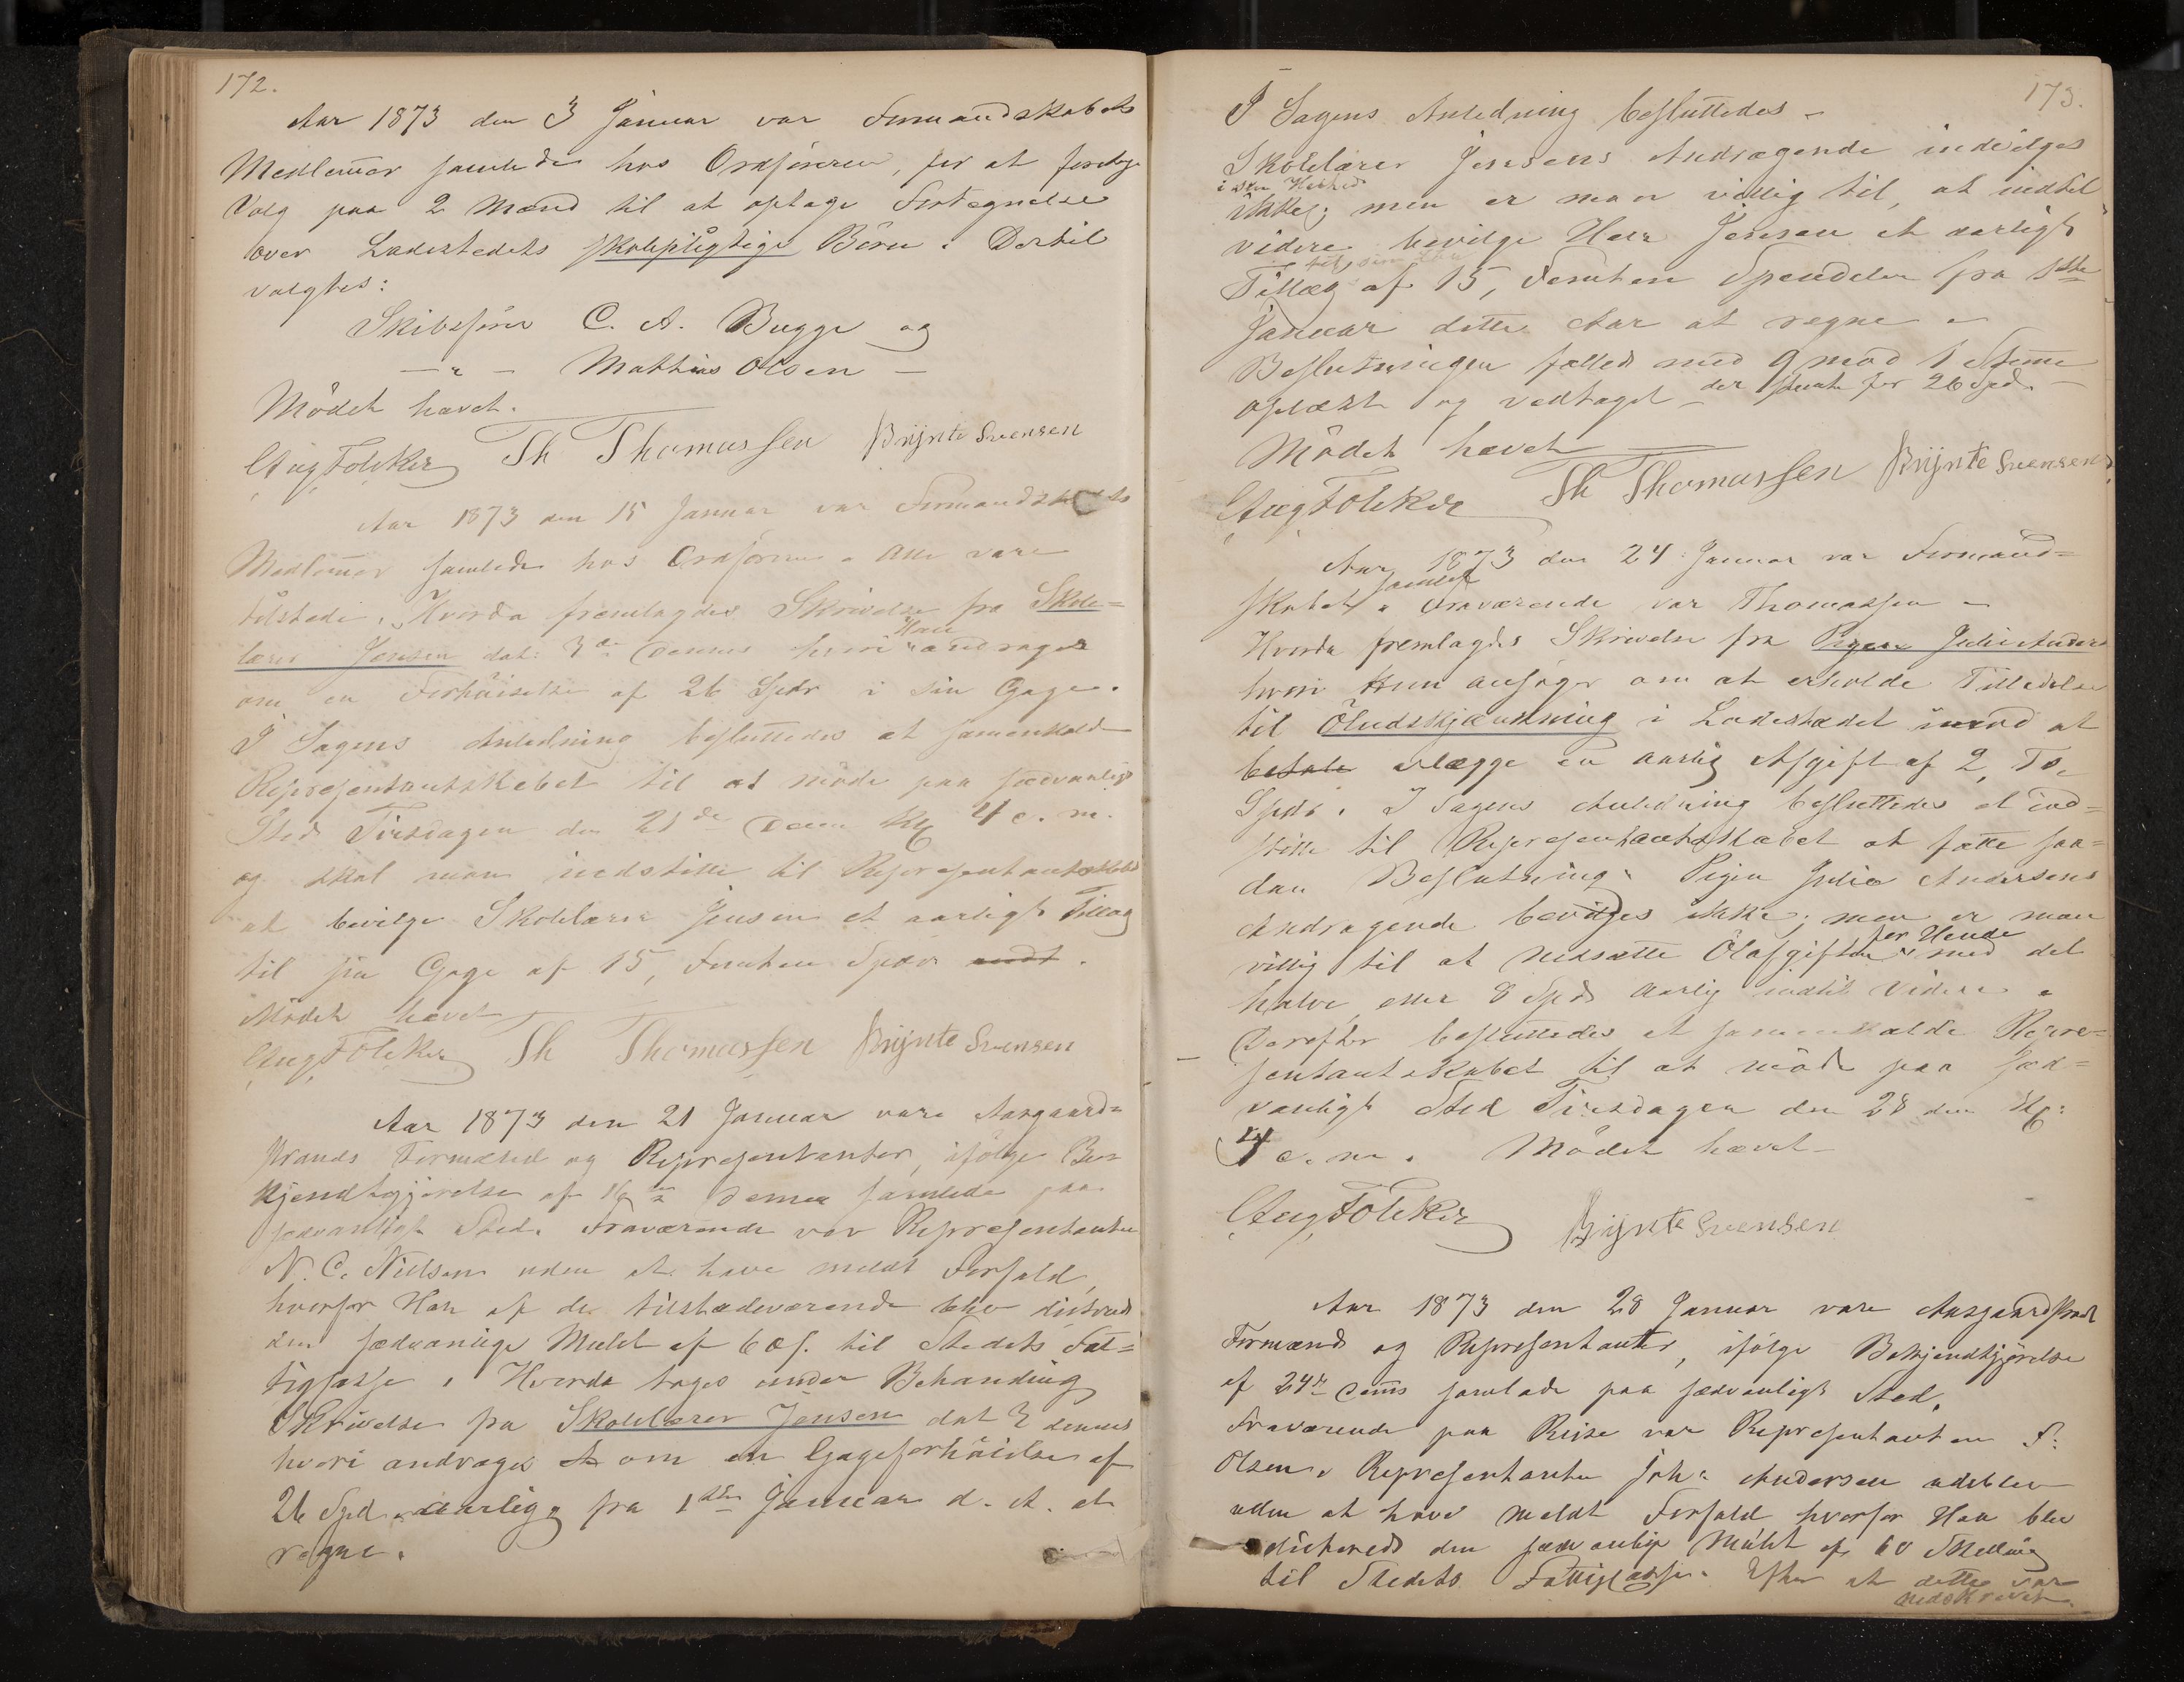 172.
Aar 1873 den 3 Januar var Formandskabets
Medlemmer samlede hos Ordføreren, for at foretage
Valg paa 2 Mænd til at optage Fortegnelse
over Ladestedets skolepligtige Börn. Dertil
valgtes:
Skibsfører C. A. Bugge og
— " — Mathias Olsen —
Mödet hævet.
Aug Fölcker Th Thomassen Brynte Svensen
Aar 1873 den 15 Januar var Formandskabets
Medlemmer samlede hos Ordføreren. Alle vare
tilstede. Hvorda fremlagdes Skrivelse fra Skole=
lærer Jensen dat: 3de dennes hvori Han andrager
om en Forhöielse af 26 Spdr i sin Gage.
I Sagens Anledning besluttedes at sammenkalde
Repræsentantskabet til at möde paa sædvanligt
Sted Tirsdagen den 21de dennes Kl 4 e. m.
og skal man indstille til Repræsentantskabet
at bevilge Skolelærer Jensen et aarligt Tillæg
til sin Gage af 15, Femten Spdr.
Mödet hævet
Aug Fölcker Th Thomassen Brynte Svensen
Aar 1873 den 21 Januar vare Aasgaard=
strands Formænd og Repræsentanter, ifölge Be=
kjendtgjörelse af 16de dennes samlede paa
sædvanligt Sted. Fraværende var Repræsentanten
N. C. Nielsen uden at have meldt Forfald,
hvorfor Han af de tilstædeværende blev dicteret
den sædvanlige Mulct af 60 s. til Stedets Fat=
tigkasse. Hvorda toges under Behandling
Skrivelse fra Skolelærer Jensen dat 3 dennes
hvori andrages om en Gageforhöielse af
26 Spd. aarlig, fra 1ste Januar d. A. at
regne.
173.
I Sagens Anledning besluttedes —
Skolelærer Jensens Andragende indvilges
i sin Helhed
ikke; men er man villig til, at indtil
videre bevilge Herr Jensen et aarligt
Tillæg af 15, Femten Speciedaler fra 1ste
Januar dette Aar at regne.
Beslutningen fattedes med 9 mod 1 Stemme
der stemte for 26 Spd. —
oplæst og vedtaget
Mödet hævet
Aug Fölcker Th Thomassen Brynte Svensen
Aar 1873 den 24 Januar var Formand=
skabet samlet. Fraværende var Thomassen —
Hvorda fremlagdes Skrivelse fra Pigen Julie Anders
hvori Hun ansöger om at erholde Tilladelse
til Öludskjænkning i Ladestædet imod at
betale erlægge en aarlig Afgift af 2, To,
Spdr. I Sagens Anledning besluttedes at ind=
stille til Repræsentantskabet at fatte saa=
dan Beslutning: Pigen Julie Andersens
Andragende bevilges ikke; men er man
villig til at nedsætte Ölafgiften for Hende med det
halve, eller 8 Spd aarlig indtil Videre.
Derefter besluttedes at sammenkalde Repre=
sentantskabet til at möde paa sæd=
vanligt Sted Tirsdagen den 28 dennes Kl:
4 e. m. Mödet hævet —
Aug Fölcker Brynte Svensen
Aar 1873 den 28 Januar vare Aasgaardstrands
Formænd og Repræsentanter, ifölge Bekjendtgjörelse
af 24de dennes samlede paa sædvanligt Sted.
Fraværende paa Reise var Repræsentanten
Olsen. Repræsentanten Joh: Andersen udeblev
uden at have meldt Forfald hvorfor Han blev
dicteret den sædvanlige Mulct af 60 Skilling
til Stedets Fattigkasse. Efter at dette var
nedskrevet